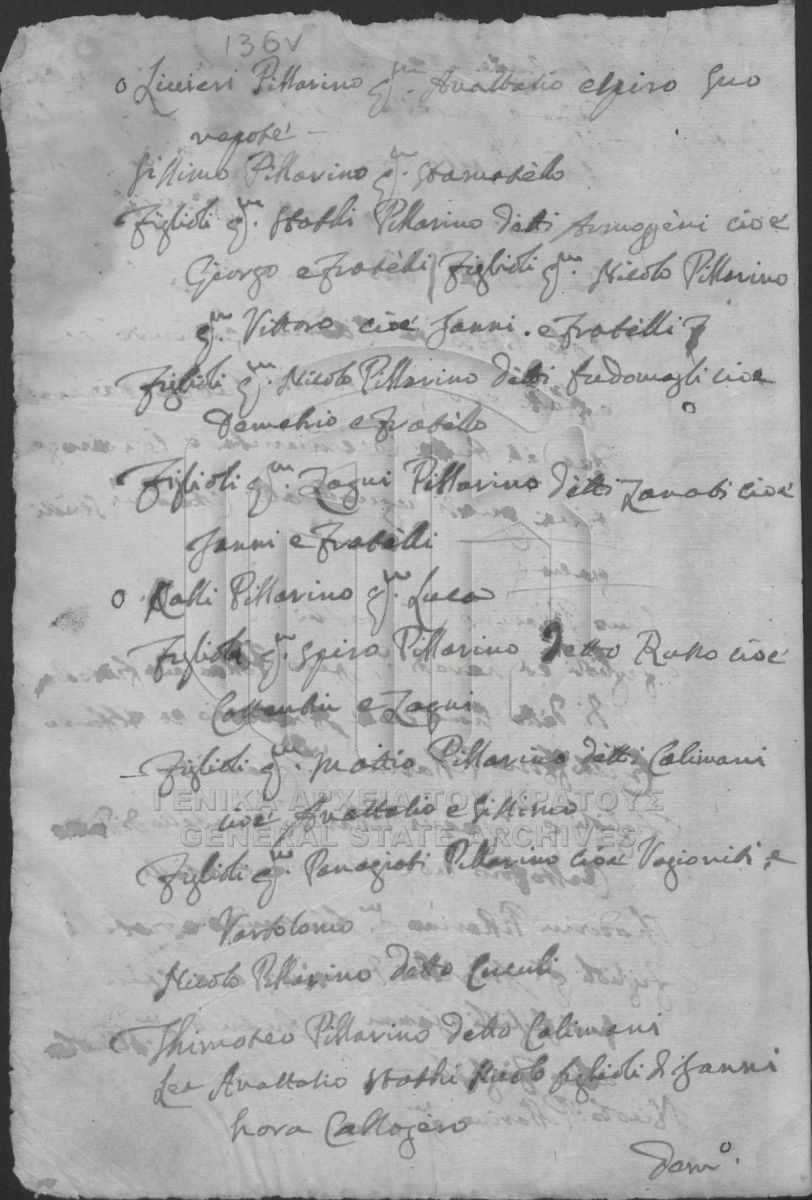 136v
o Liuieri Pillarino qm. Anastasio e Spiro suo
nepote
Sissimo Pillarino qm. Stamatello
Figlioli qm. Stathi Pillarino detti Armogeni cioè
Giorgo e fratelli Figlioli qm. Nicolo Pillarino
qm. Vittora cioè Janni. e fratelli
Figlioli qm. Nicolo Pillarino detti cioè
Demetrio e fratello
Figlioli qm. Zagni Pillarino detti Zanati cioè
Janni e fratelli
o Ralli Pillarino qm. Luca
Figlioli qm. Spiro Pillarino detto Russo cioè
Costantin e Zagni
Figlioli qm. Mattio Pillarino detti Calimani
cioè Anastasio e Sissimo
Figlioli qm. Panagioti Pillarino cioè Vagioniti e
ΓΕΝΙΚΑ ΑΡΧΕΙΑ ΤΟΥ ΚΡΑΤΟΥΣ
GENERAL STATE ARCHIVES
Vartolomio
Nicolo Pillarino detto Cuculi
o Thimoteo Pillarino detto Calimani
Lea Anastasio Stathi Nicolo figlioli di Janni
hora Callogero